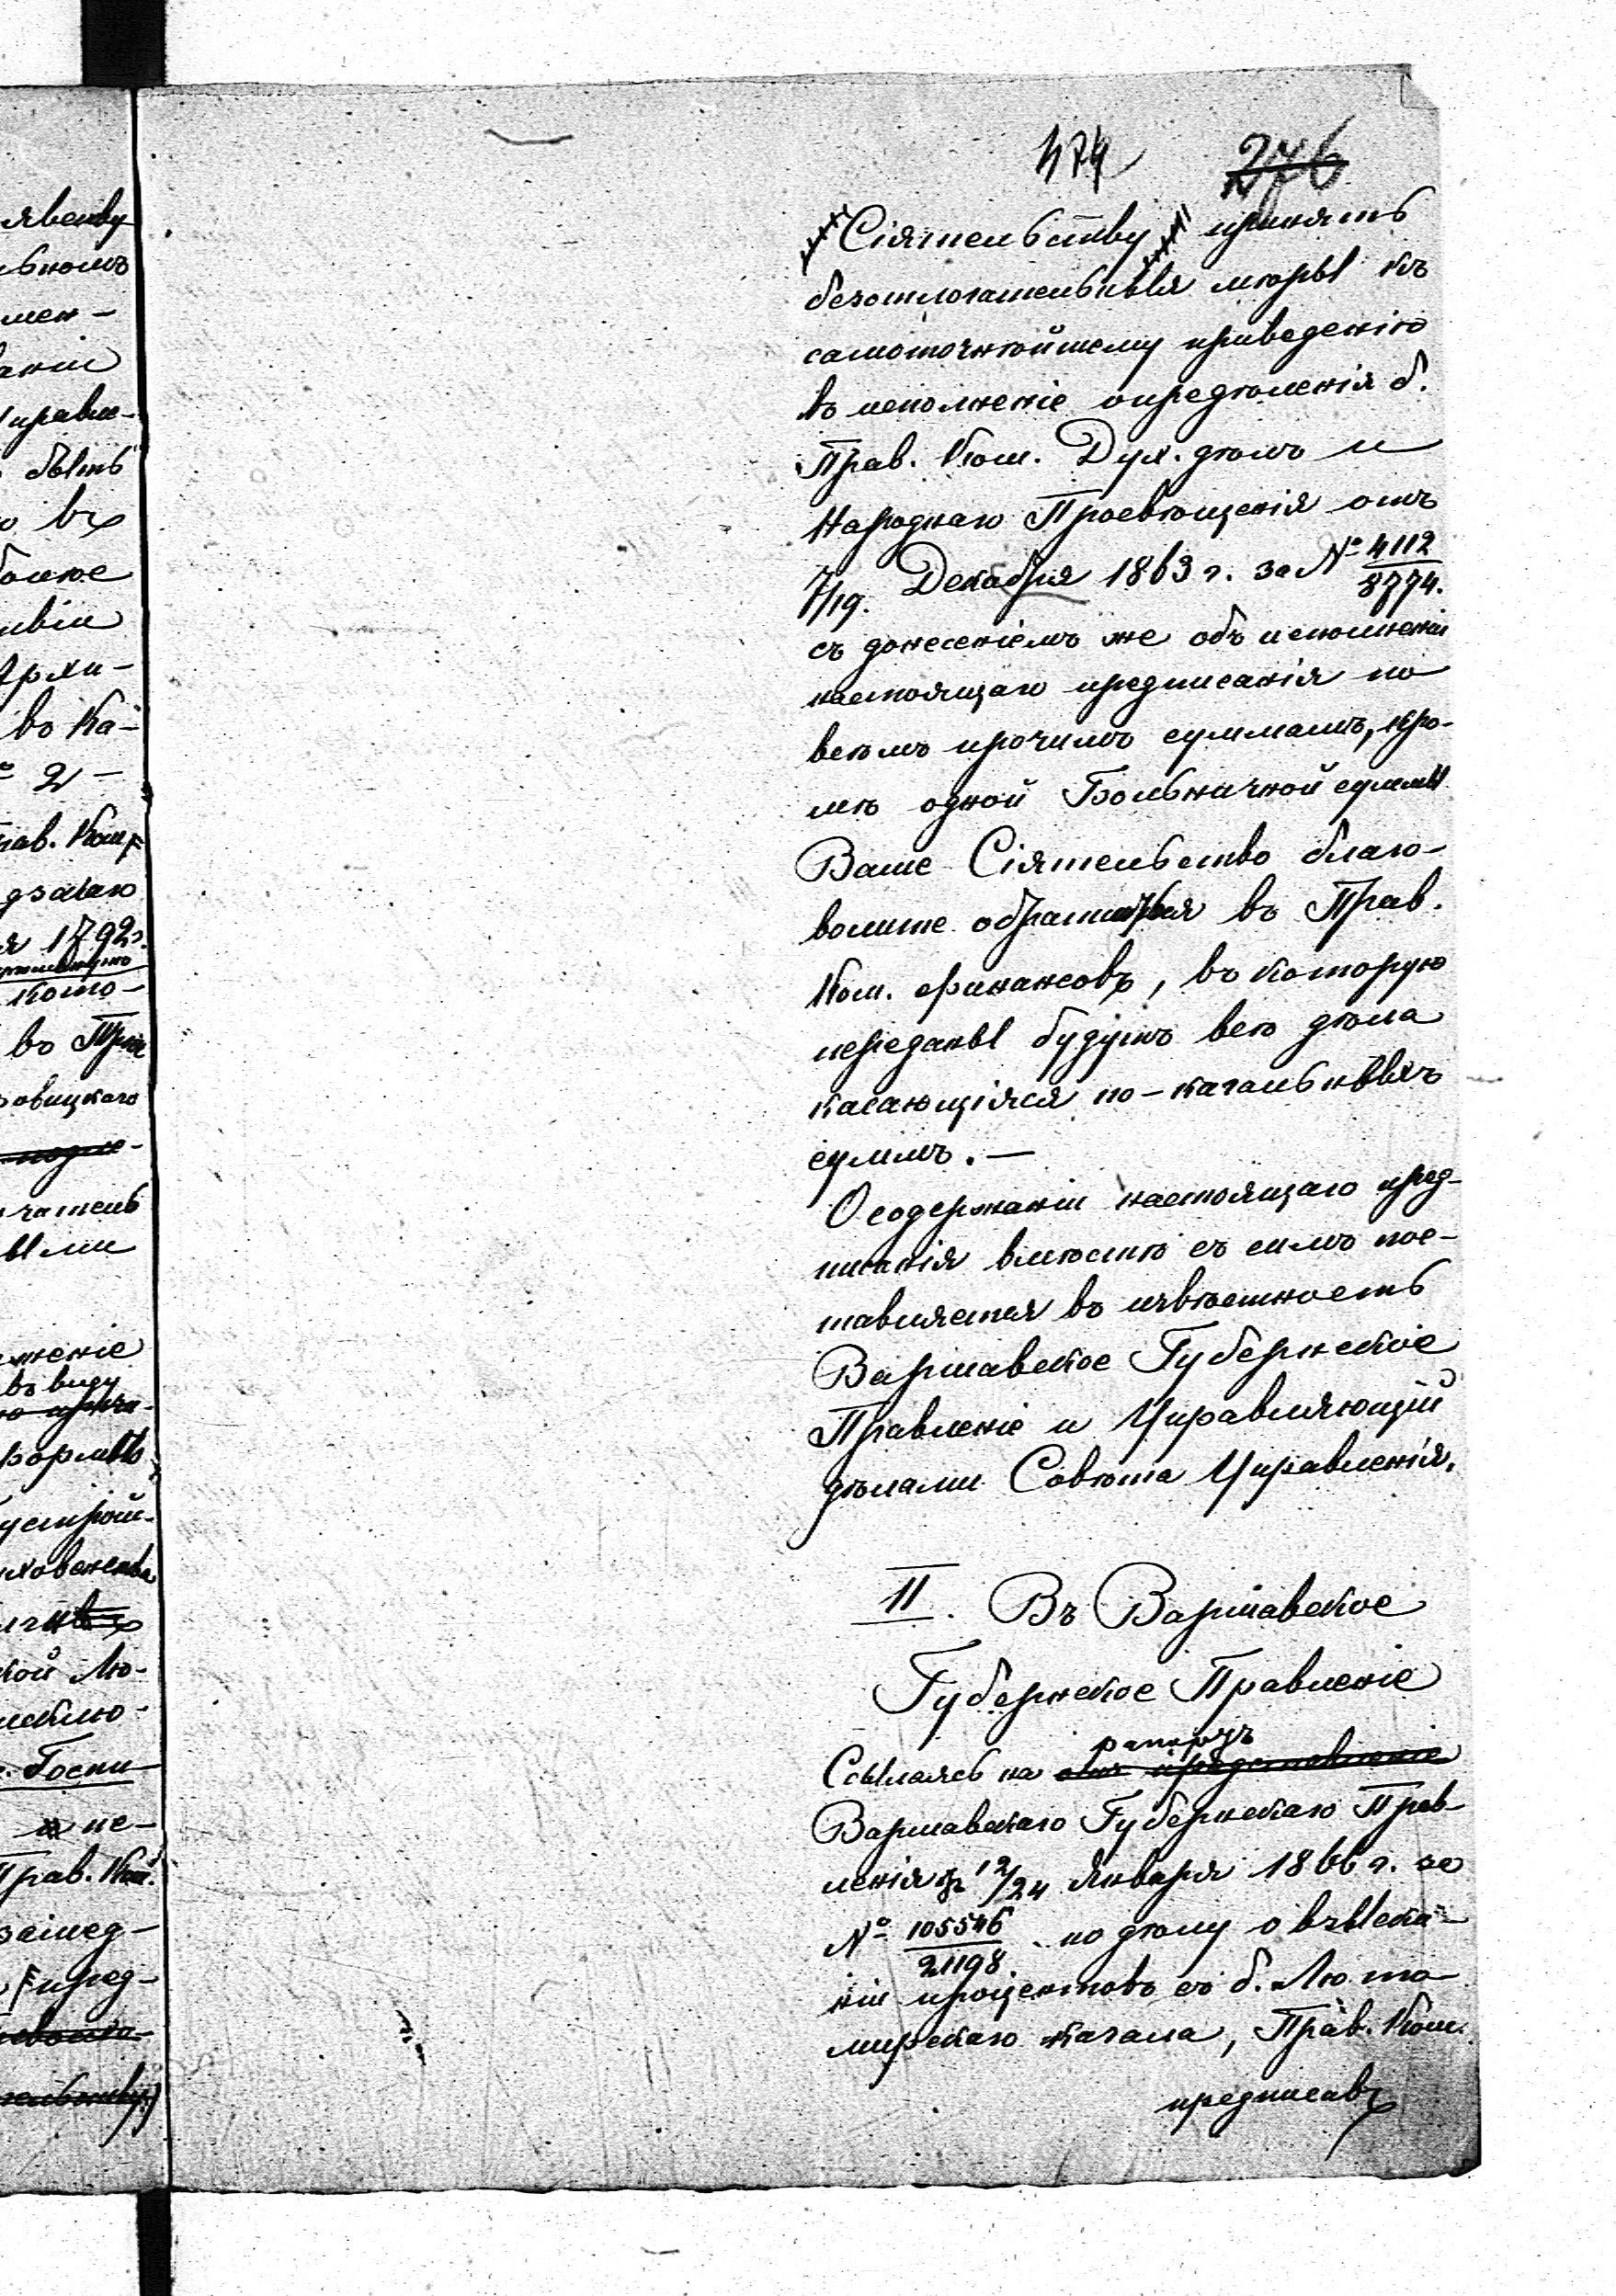 474 276
Сіятельству принять
безотлагательныя мѣры къ
самоточнѣйшему приведенію
въ исполненіе опредѣленія б.
Прав. Ком. Дух. дѣлъ и
Народнаго Просвѣщенія отъ
7/19. Декабря 1863 г. за № 4112/8774.
съ донесеніемъ же объ исполненіи
настоящаго предписанія по
всѣмъ прочимъ суммамъ, кро-
мѣ одной Больничной суммы
Ваше Сіятельство благо-
волите обратиться въ Прав.
Ком. Финансовъ, въ которую
переданы будутъ всѣ дѣла
касающіяся по-кагальныхъ
суммъ. —
О содержаніи настоящаго пред-
писанія вмѣстѣ съ симъ пос-
тавляется въ извѣстность
Варшавское Губернское
Правленіе и Управляющій
дѣлами Совѣта Управленія.
II. Въ Варшавское
Губернское Правленіе
рапортъ
Ссылаясь на представленіе
Варшавскаго Губернскаго Прав-
ленія 12/24 Января 1866 г. за
№ 105546/21198. по дѣлу о взыска-
ніи процентовъ съ б. Люто-
мирскаго кагала, Прав. Ком.
предписавъ
явству
мен-
аніи
быть
въ
въ Ка-
№ 2 —
Прав. Ком.
1792 г.
кото-
въ Прав
ыми
въ виду
устрой-
кой Лю-
Госпи-
не-
Прав. Ком.
пред-